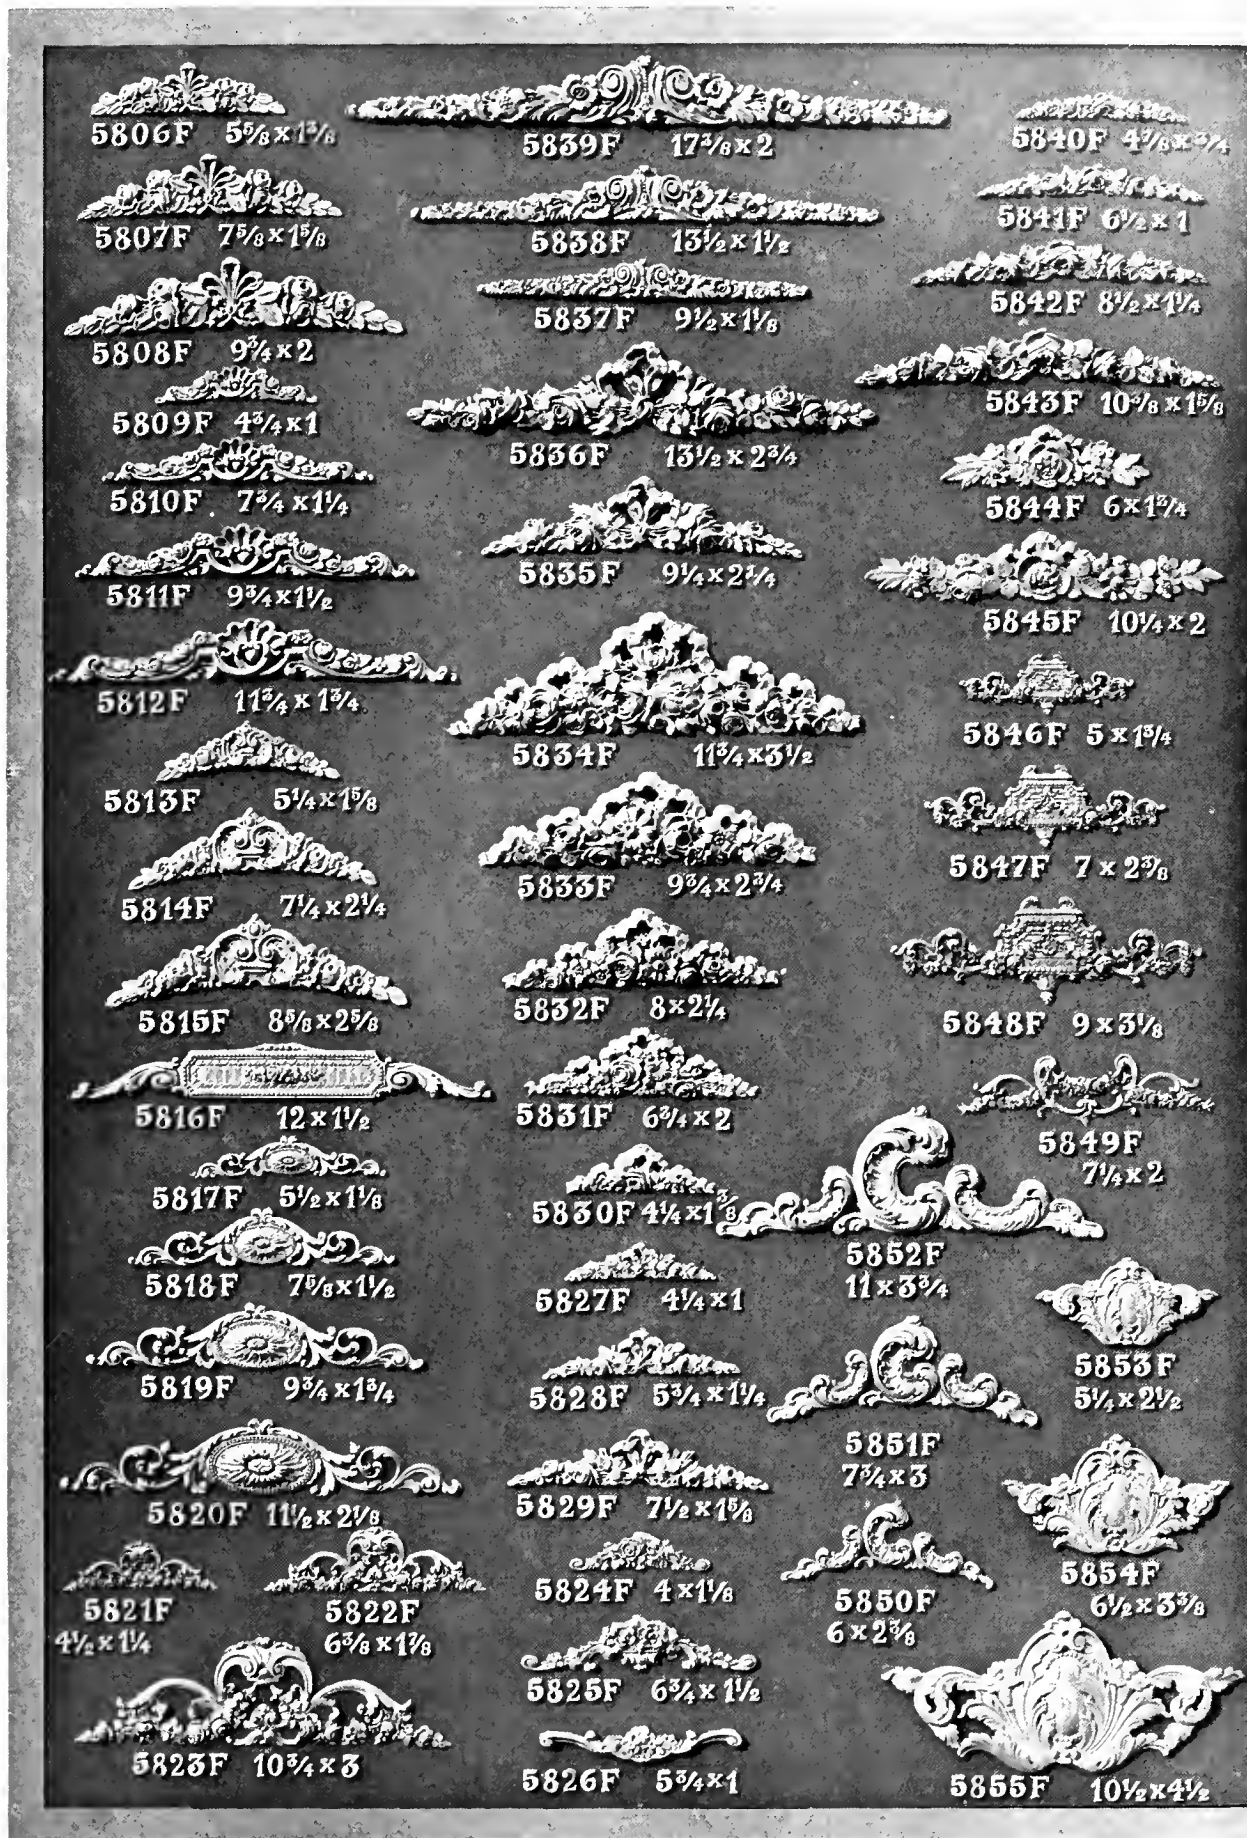 5806F 5⅝ x 1⅜
5807F 7⅝ x 1⅝
5808F 9¾ x 2
5809F 4¾ x 1
5810F 7¾ x 1¼
5811F 9¾ x 1½
5812F 11¾ x 1¾
5813F 5¼ x 1⅝
5814F 7¼ x 2¼
5815F 8⅝ x 2⅝
5816F 12 x 1½
5817F 5½ x 1⅛
5818F 7⅝ x 1½
5819F 9¾ x 1¾
5820F 11½ x 2⅛
5821F
4½ x 1¼
5822F
6⅜ x 1⅞
5823F 10¾ x 3
5839F 17⅜ x 2
5838F 13½ x 1½
5837F 9½ x 1⅛
5836F 13½ x 2¾
5835F 9¼ x 2¼
5834F 11¾ x 3½
5833F 9¾ x 2¾
5832F 8 x 2¼
5831F 6¾ x 2
5830F 4¼ x 1⅜
5827F 4¼ x 1
5828F 5¾ x 1¼
5829F 7½ x 1⅝
5824F 4 x 1⅛
5825F 6¾ x 1½
5826F 5¾ x 1
5840F 4⅞ x ¾
5841F 6½ x 1
5842F 8½ x 1¼
5843F x 1⅝
5844F 6 x 1¾
5845F 10¼ x 2
5846F 5 x 1¾
5847F 7 x 2⅜
5848F 9 x 3⅛
5849F
7¼ x 2
5852F
11 x 3¾
5853F
5¼ x 2½
5851F
7¾ x 3
5854F
6½ x 3⅜
5850F
6 x 2⅜
5855F 10½ x 4½